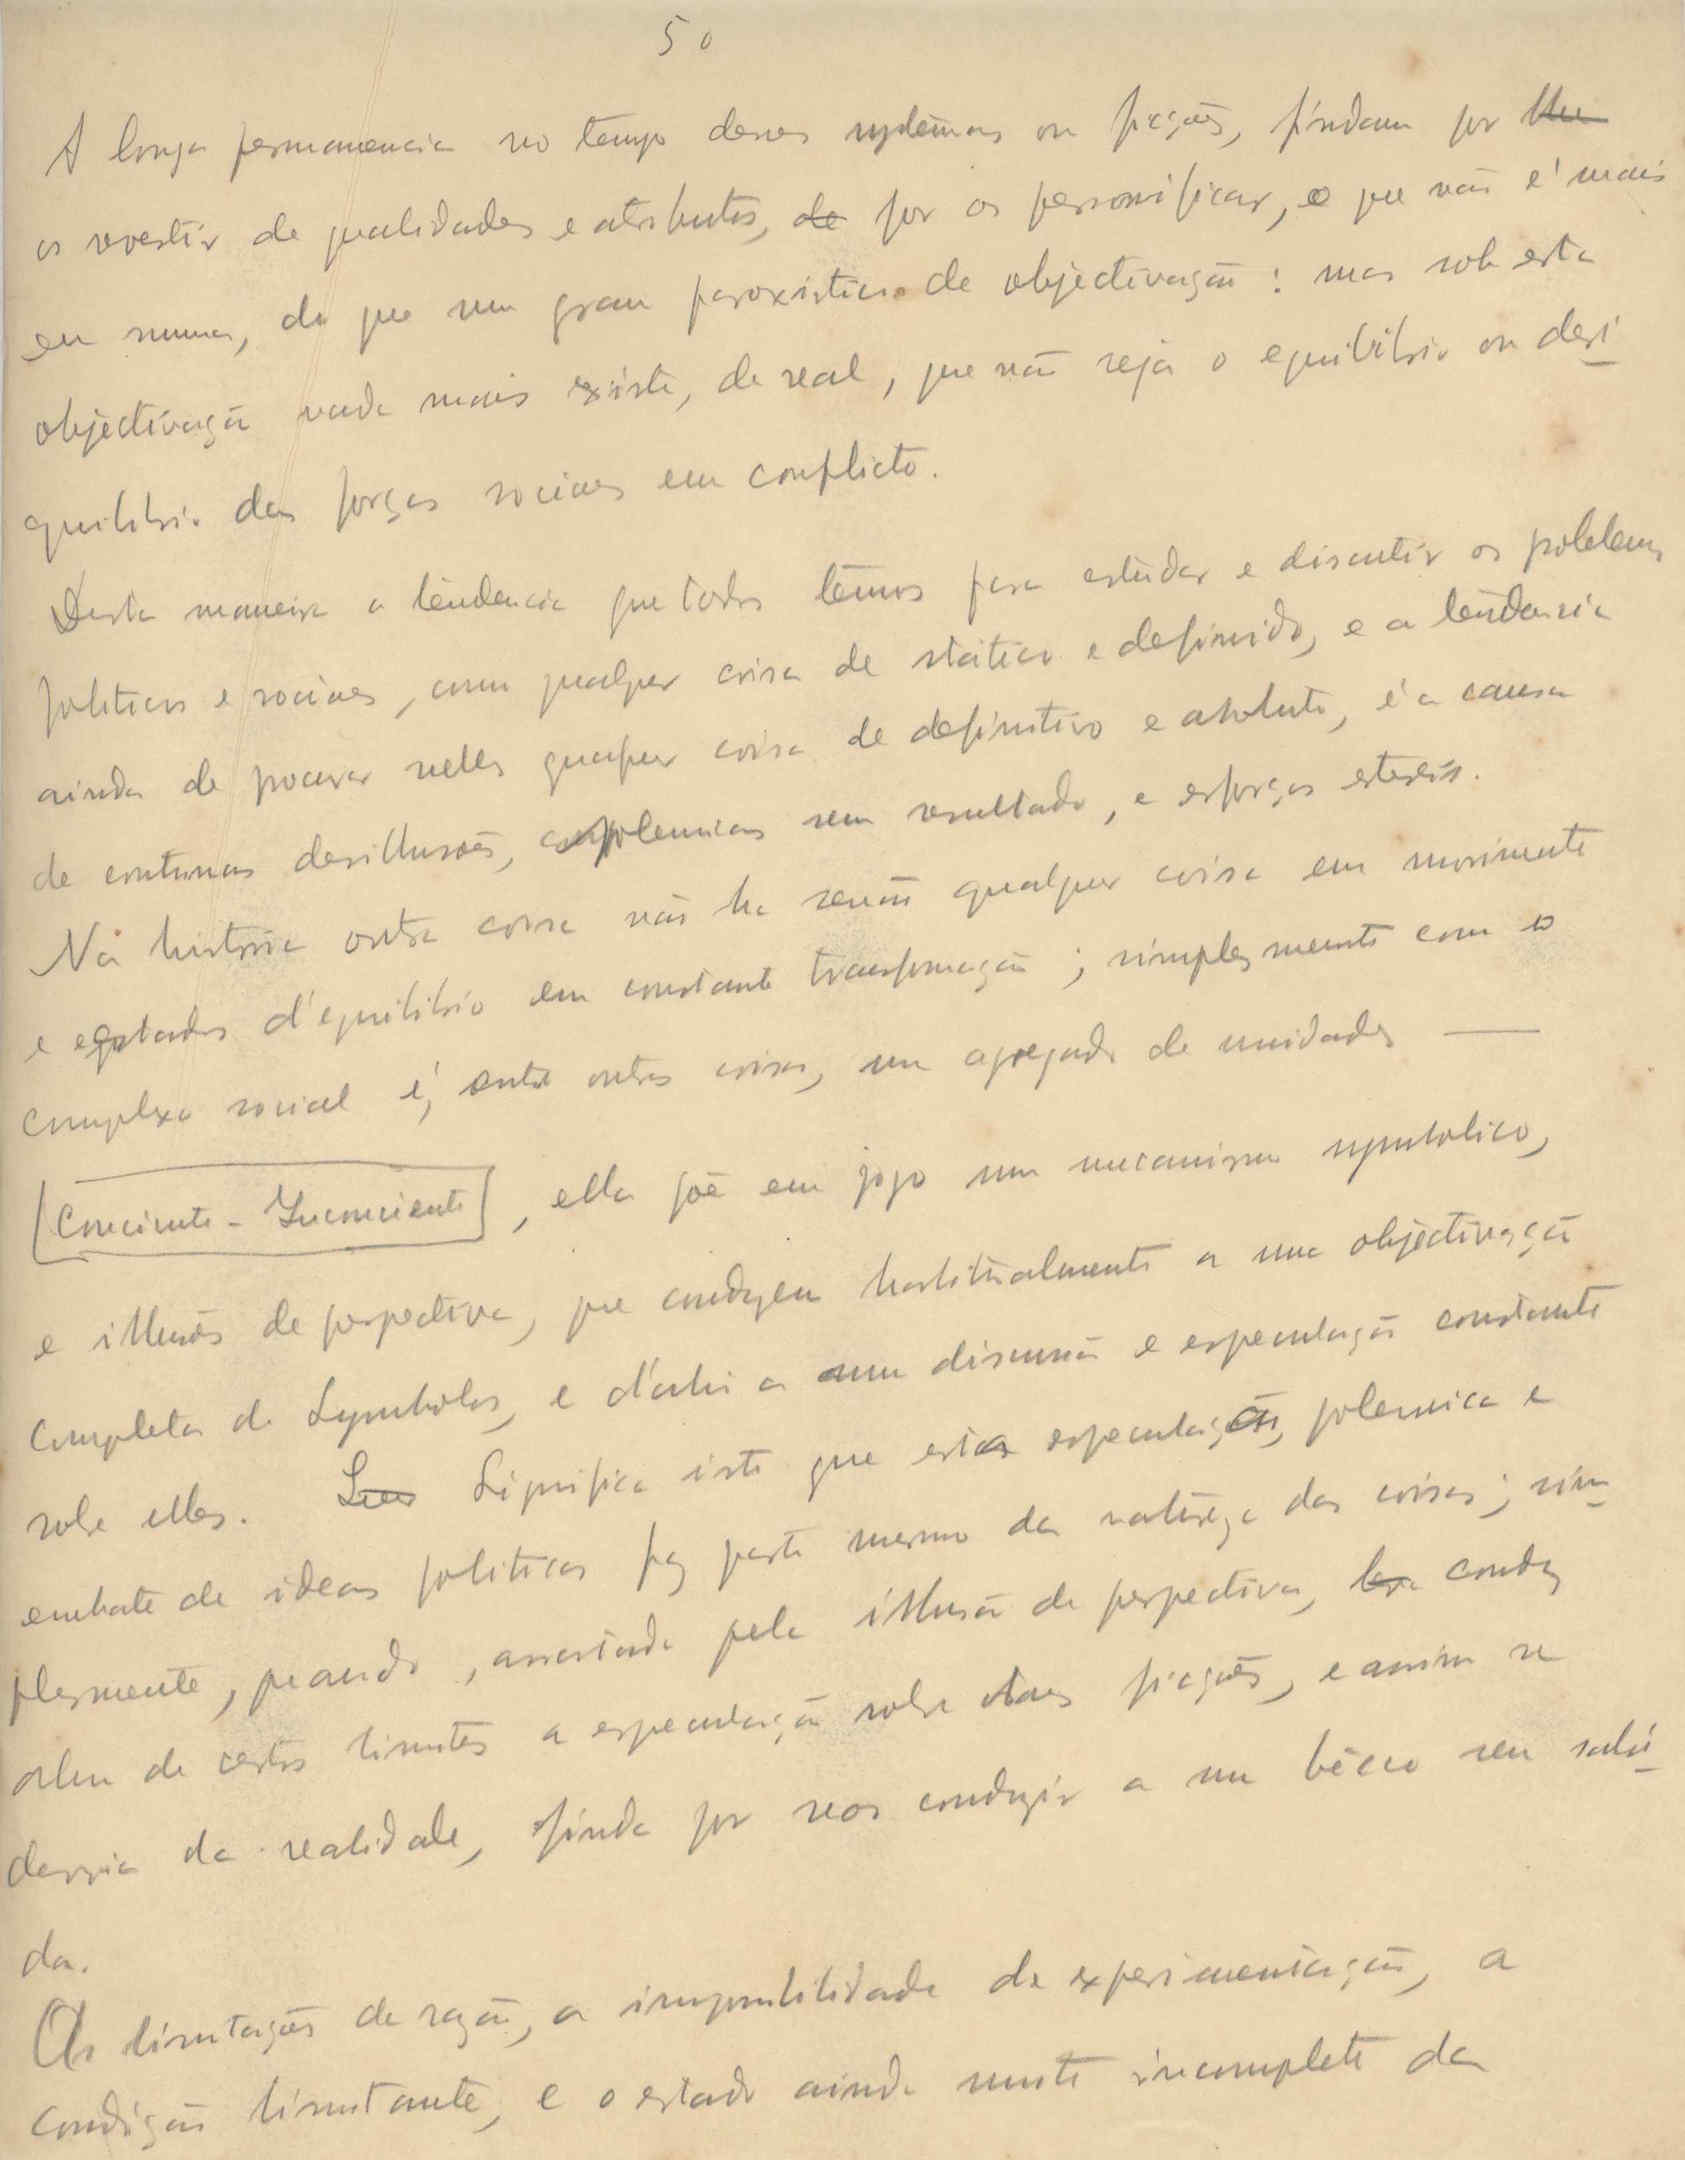 50
A longa permanencia no tempo desses systemas ou ficções, findam por lhe
os revestir de qualidades e atributos, de por os personificar, o que não é mais
em summa, do que um grau paroxistico de objectivação: mas sob esta
objectivação nada mais existe, de real, que não seja o equilibrio ou desi
quilibrio das forças sociaes em conflicto.
Desta maneira a tendencia que todos temos para estudar e discutir os problemas
politicos e sociaes, como qualquer coisa de statico e definido, e a tendencia
ainda de procurar nelles qualquer coisa de definitivo e absoluto, é a causa
de continuas desillusões, polemicas sem resultado, e esforços estereis.
Na historia outra coisa não ha senão qualquer coisa em movimento
e estados d'equilibrio em constante transformação; simplesmente com o
complexo social é, entre outras coisas, um agregado de unidades —
[Conciente - Inconciente], ella põe em jogo um mecanismo symbolico,
e illusões de perspectiva, que conduzem habitualmente a uma objectivação
completa de Symbolos, e d'ahi a uma discussão e especulação constante
sobre elles. Significa isto que esta especulação, polemica e
embate de ideas politicas faz parte mesmo da natureza das coisas; sim
plesmente, quando, arrastada pela illusão de perspectiva, conduz
alem de certos limites a especulação sobre ficções, e assim se
desvia da realidade, finda por nos conduzir a um bêcco sem sahi
da.
As limitações da razão, a impossibilidade de experimentação, a
condição limitante, e o estado ainda muito incompleto da